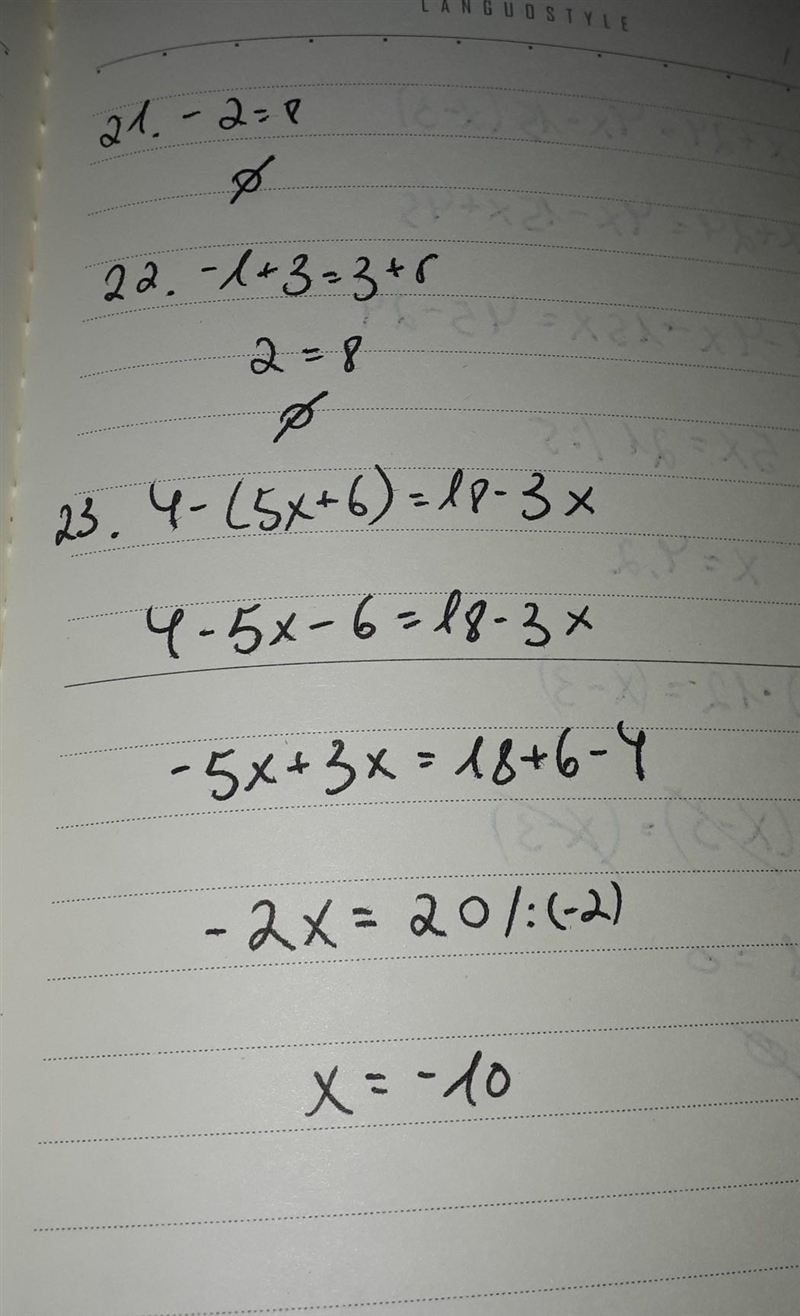 LANGUOSTYLE
21. -2=8
∅
22. -1+3=3+5
2=8
∅
23. 4-(5x+6)=18-3x
4-5x-6=18-3x
-5x+3x=18+6-4
-2x=20/:(-2)
x=-10